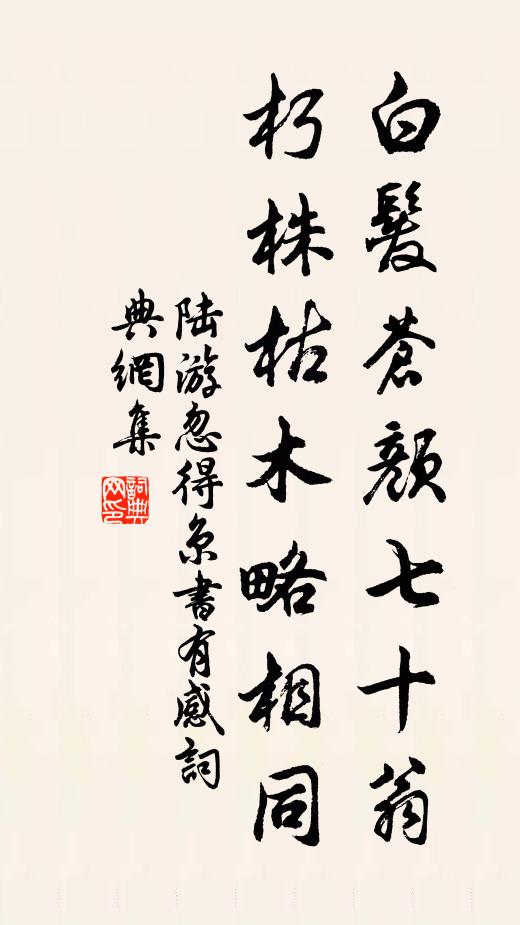 白髮蒼顏七十翁
朽株枯木略相同
陆游忽得京書有感詞
典網集
詞典网印